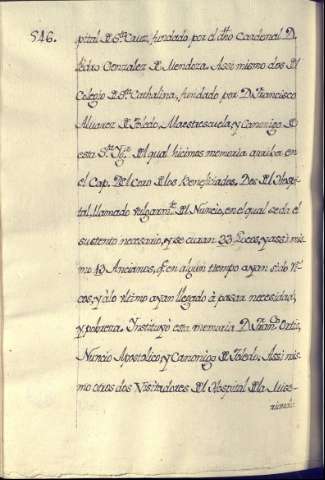 546.
pital de Sta. Cruz, fundado por el dho Cardenal D.
Pedro Gonzalez de Mendoza. Assi mismo dos del
Colegio de Sta. Cathalina, fundado por D. Francisco
Alvarez de Toledo, Maestrescuela, y Canonigo de
esta Sta. Ygª. del qual hicimos memoria arriba en
el Cap. del Coro de los Beneficiados. Dos del Hospi-
tal llamado vulgarmte. del Nuncio, en el qual se da el
sustento necesario, y se curan 33 Locos, y assi mis-
mo 13 Ancianos, q̃ en algun tiempo ayan sido Ri-
cos, y à lo ultimo ayan llegado à passar necesidad,
y pobreza. Instituyò esta memoria D. Franco. Ortiz,
Nuncio Apostolico, y Canonigo de Toledo. Assi mis-
mo otros dos Visitadores del Hospital de la Mise-
ricordia